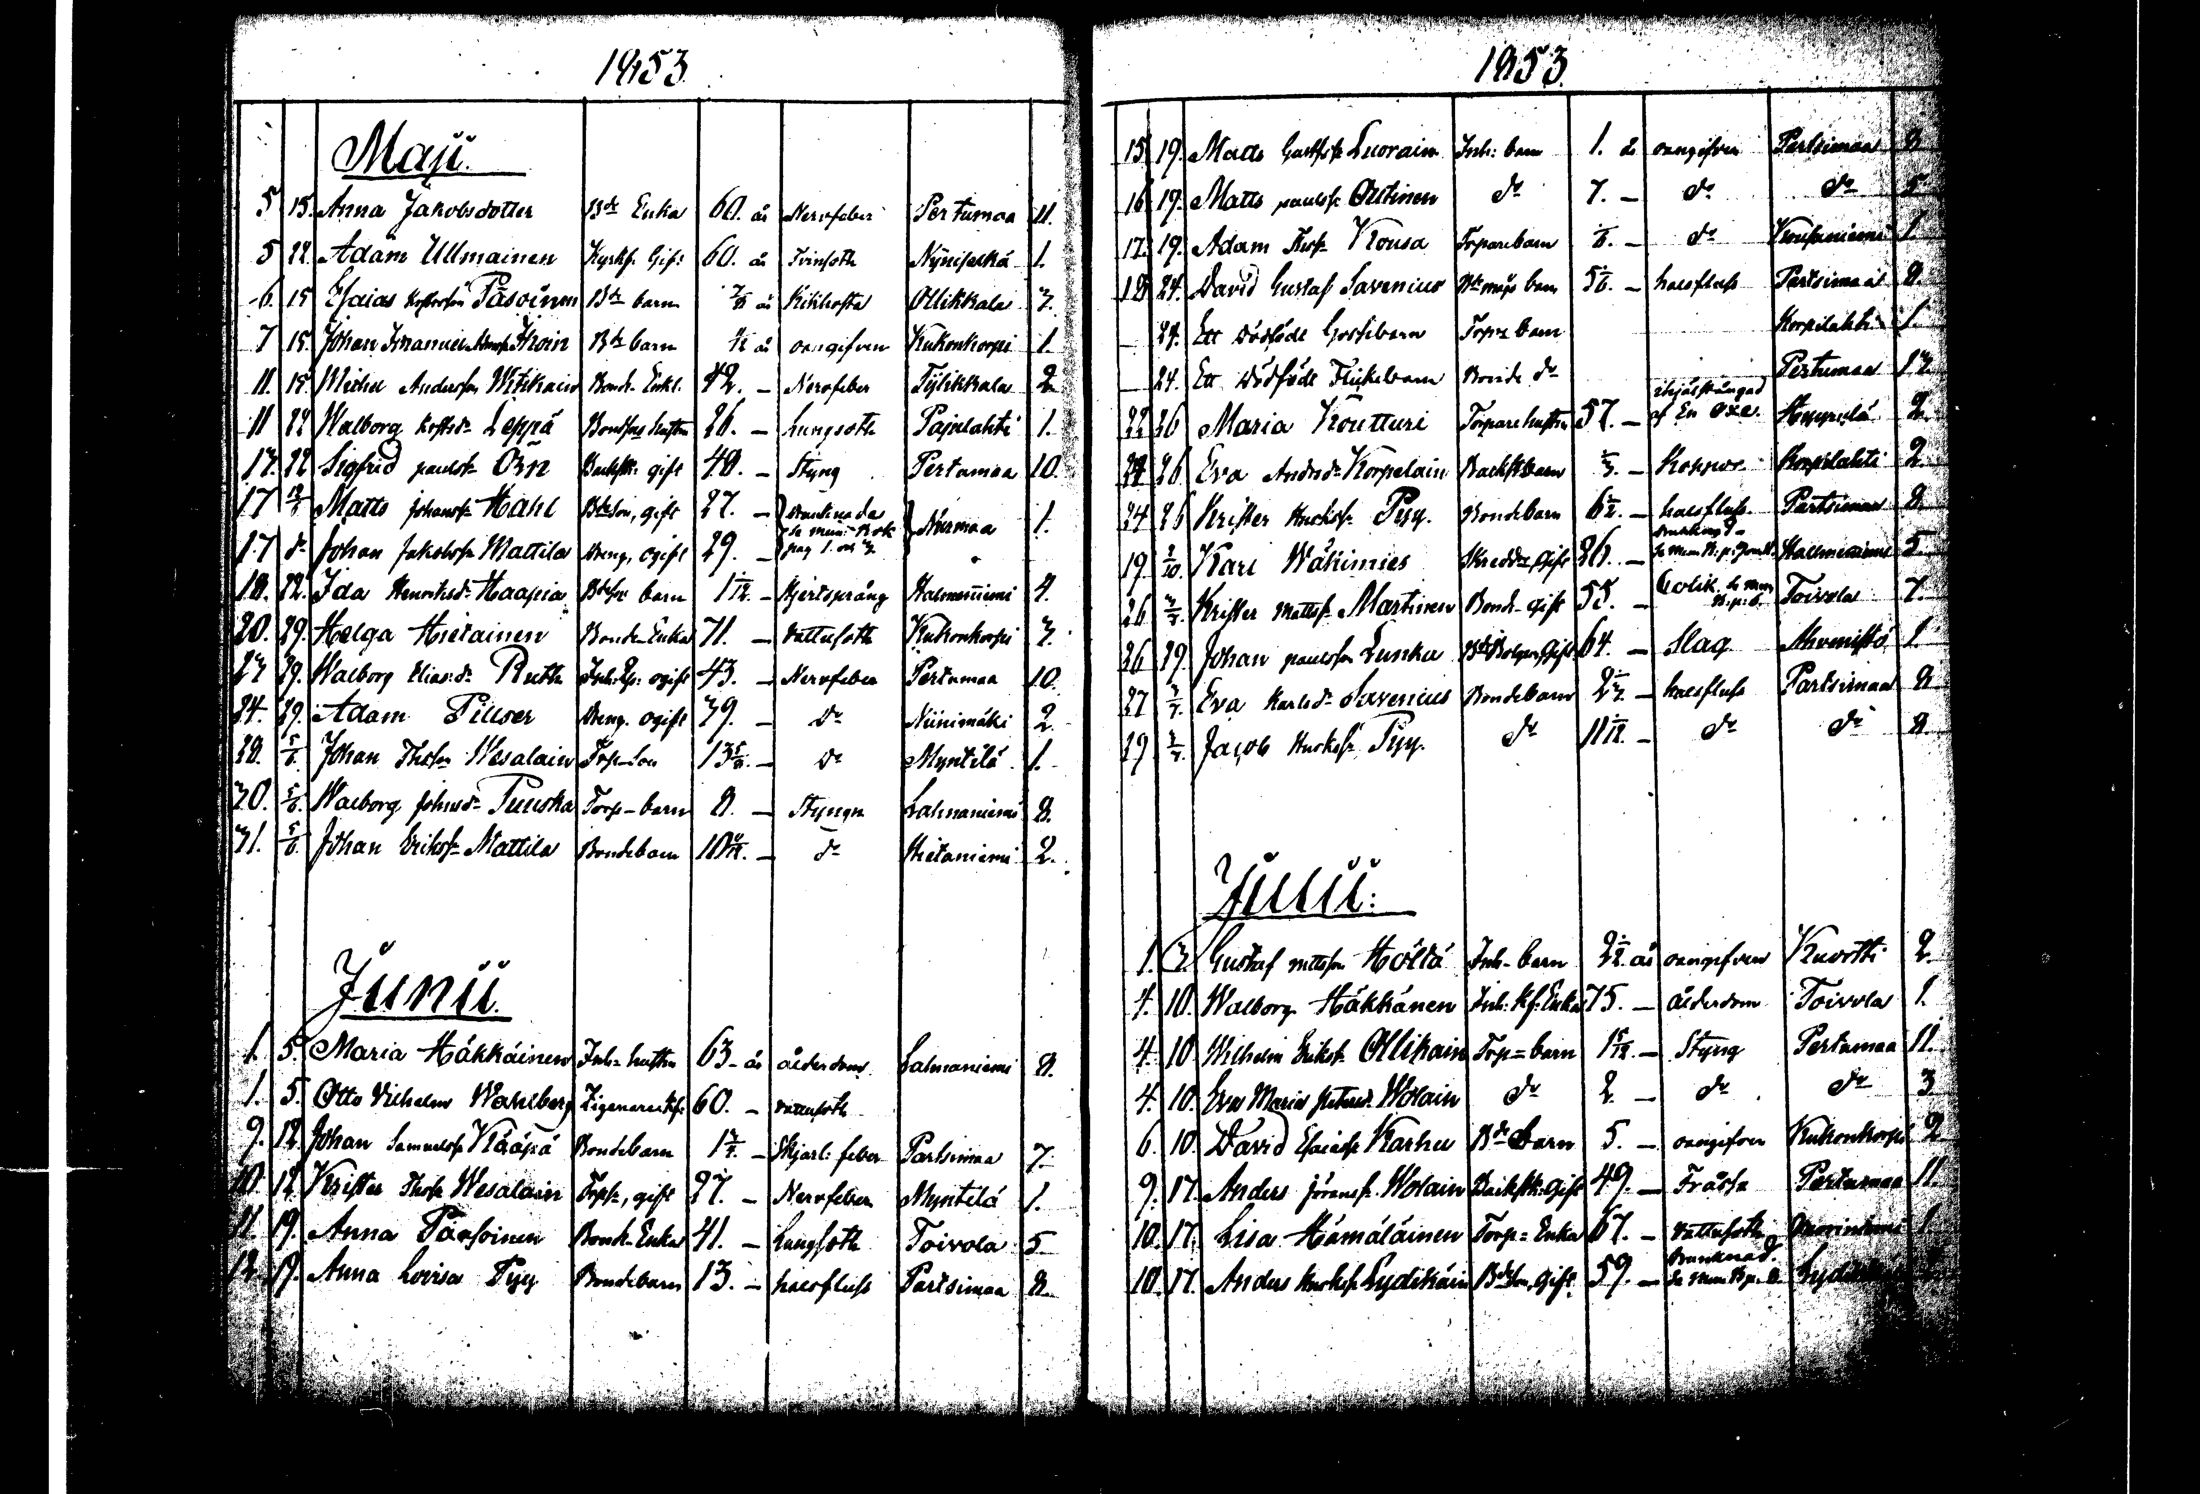 1853
Maji.
5 15. Anna Jakobsdotter Bde Enka 60. år Nervfeber Pertumaa 11.
5 22. Adam Ullmainen Kyrkf. Gift 60. år Tvinsoth Nÿnisalkä 1.
6. 15 Esaias Påsoinen Bde barn år Kikhosta Ollikkala 3.
7 15. Johan Imanuel Thoin Bde barn år oangifven Kukonkorpi 1.
11. 15. Michel Andersson Witikain Bond. Enkl. 42. – Nervfeber Tÿlikkala 2
11 22 Walborg Leppä Bondens hustru 26. – Lungsoth Pajulahti 1.
13. 22 Sigfrid paulss. Örn Backst. gift 48. – Styng Pertumaa 10.
17 Matts johanss. Hahl Bde Son, gift 27. – drunknade Nurmaa 1.
se Mini Bok
17 do Johan Jakobss. Mattila Dreng, ogift 29. – pag 1. och 3.
18. 22. Ida Henriksdr Haapia Bde barn 1 1/12. – Hjertsprång Halmeniemi 4.
20. 29. Helga Hietainen Bonde Enka 71. – vattusoth Kukonkorpi 3.
23 29. Walborg Eliasdr Ruth ogift 43. – Nervfeber Pertumaa 10.
24. 29. Adam Pillser Dreng. ogift 39. – do Niinimäki 2.
28. 5/6. Johan Thoss. Wesalain Torp. Son 13 – do Myntilä 1.
30. 5/6. Walborg johansdr Puuska Torp. barn 8. – Styngn Lahnaniemi 8.
31. 5/6. Johan Erikss. Mattila Bondebarn 10 – do Hietaniemi 2.
Junii.
1. 5. Maria Häkkäinen Inh. hustru 63. år ålderdom Lahnaniemi 8.
1. 5. Otto Vilhelm Wahlberg Zigenare 60. – vattusoth
9. 12. Johan Samuelss. Kääpä Bondebarn 1 – Skjarl: feber Partsimaa 7.
10. 12. Krister Thoss. Wesalain Torpr, gift 27. – Nervfeber Myntilä 1.
11. 19. Anna Pärsoinen Bond. Enka 41. – Lungsoth Toivola 5.
12. 19. Anna Lovisa Pyy Bondebarn 13. – halsfluss Partsimaa 8.
1853
15 19. Mats Gustfss. Luorain Inh: barn 1. år oangifven Partsimaa 8
16 19. Matts paulss. Ahtinen do 7. – do do 5
17. 19. Adam Thoss. Kousa Torparebarn – do 1.
18 24. David Gustaf Savenius barn 5 – halsfluss Partsimaa 8.
– 24. Ett dödfödt Gossebarn Torpr barn Korpilahti 1
– 24. Ett dödfödt Flickebarn Bonde do Pertumaa 12.
ihjälstångad
22 26 Maria Koutturi Torpare hustru 57. – af En Oxe. 2.
26 Eva Andrsdr Korpelain Backst. barn – Koppor Korpilahti 2.
24 26 Krister Henrikss. Pyy. Bondebarn 6 – halsfluss. Partsimaa 8.
19. Karl Wäkimies Skredd. gift 26. – Halmeniemi 5.
26 3/7. Krister Mattss. Martinen Bond. gift 55. – Colik. se Mini Toivola 7.
26 29. Johan paulsson Lunka gift 64. – Slag Ahvenisto 1.
27 3/7. Eva Karlsdr Savenius Bondebarn 2 – halsfluss Partsimaa 8
29 3/7. Jacob Henrikss. Pyy. do 11 – do do 8.
Julii:
1. 3 Gustaf mattsson Höltä Inh. barn 2 år oangifven Kuortti 2.
4. 10. Walborg Häkkänen Inh. Enka 75. – ålderdom Toivola 1.
4. 10 Wilhelm Erikss. Ollikain Torp= barn 1 – Styng Pertumaa 11.
4. 10. Eva Maria petersdr Wolain do 2 – do do 3
6. 10. David Esaiass. Karhu Bde barn 5. – oangifven Kukonkorpi 2
9. 17. Anders jöranss. Wolain Backst. gift 49. – Fråssa Pertumaa 11.
10. 17. Lisa Hämäläinen Torp= Enka 67. – vattusoth 1
drunknad.
10. 17. Anders Henrikss. Lydikäin Bde Son, gift. 59. – se Mini B. p. 8.